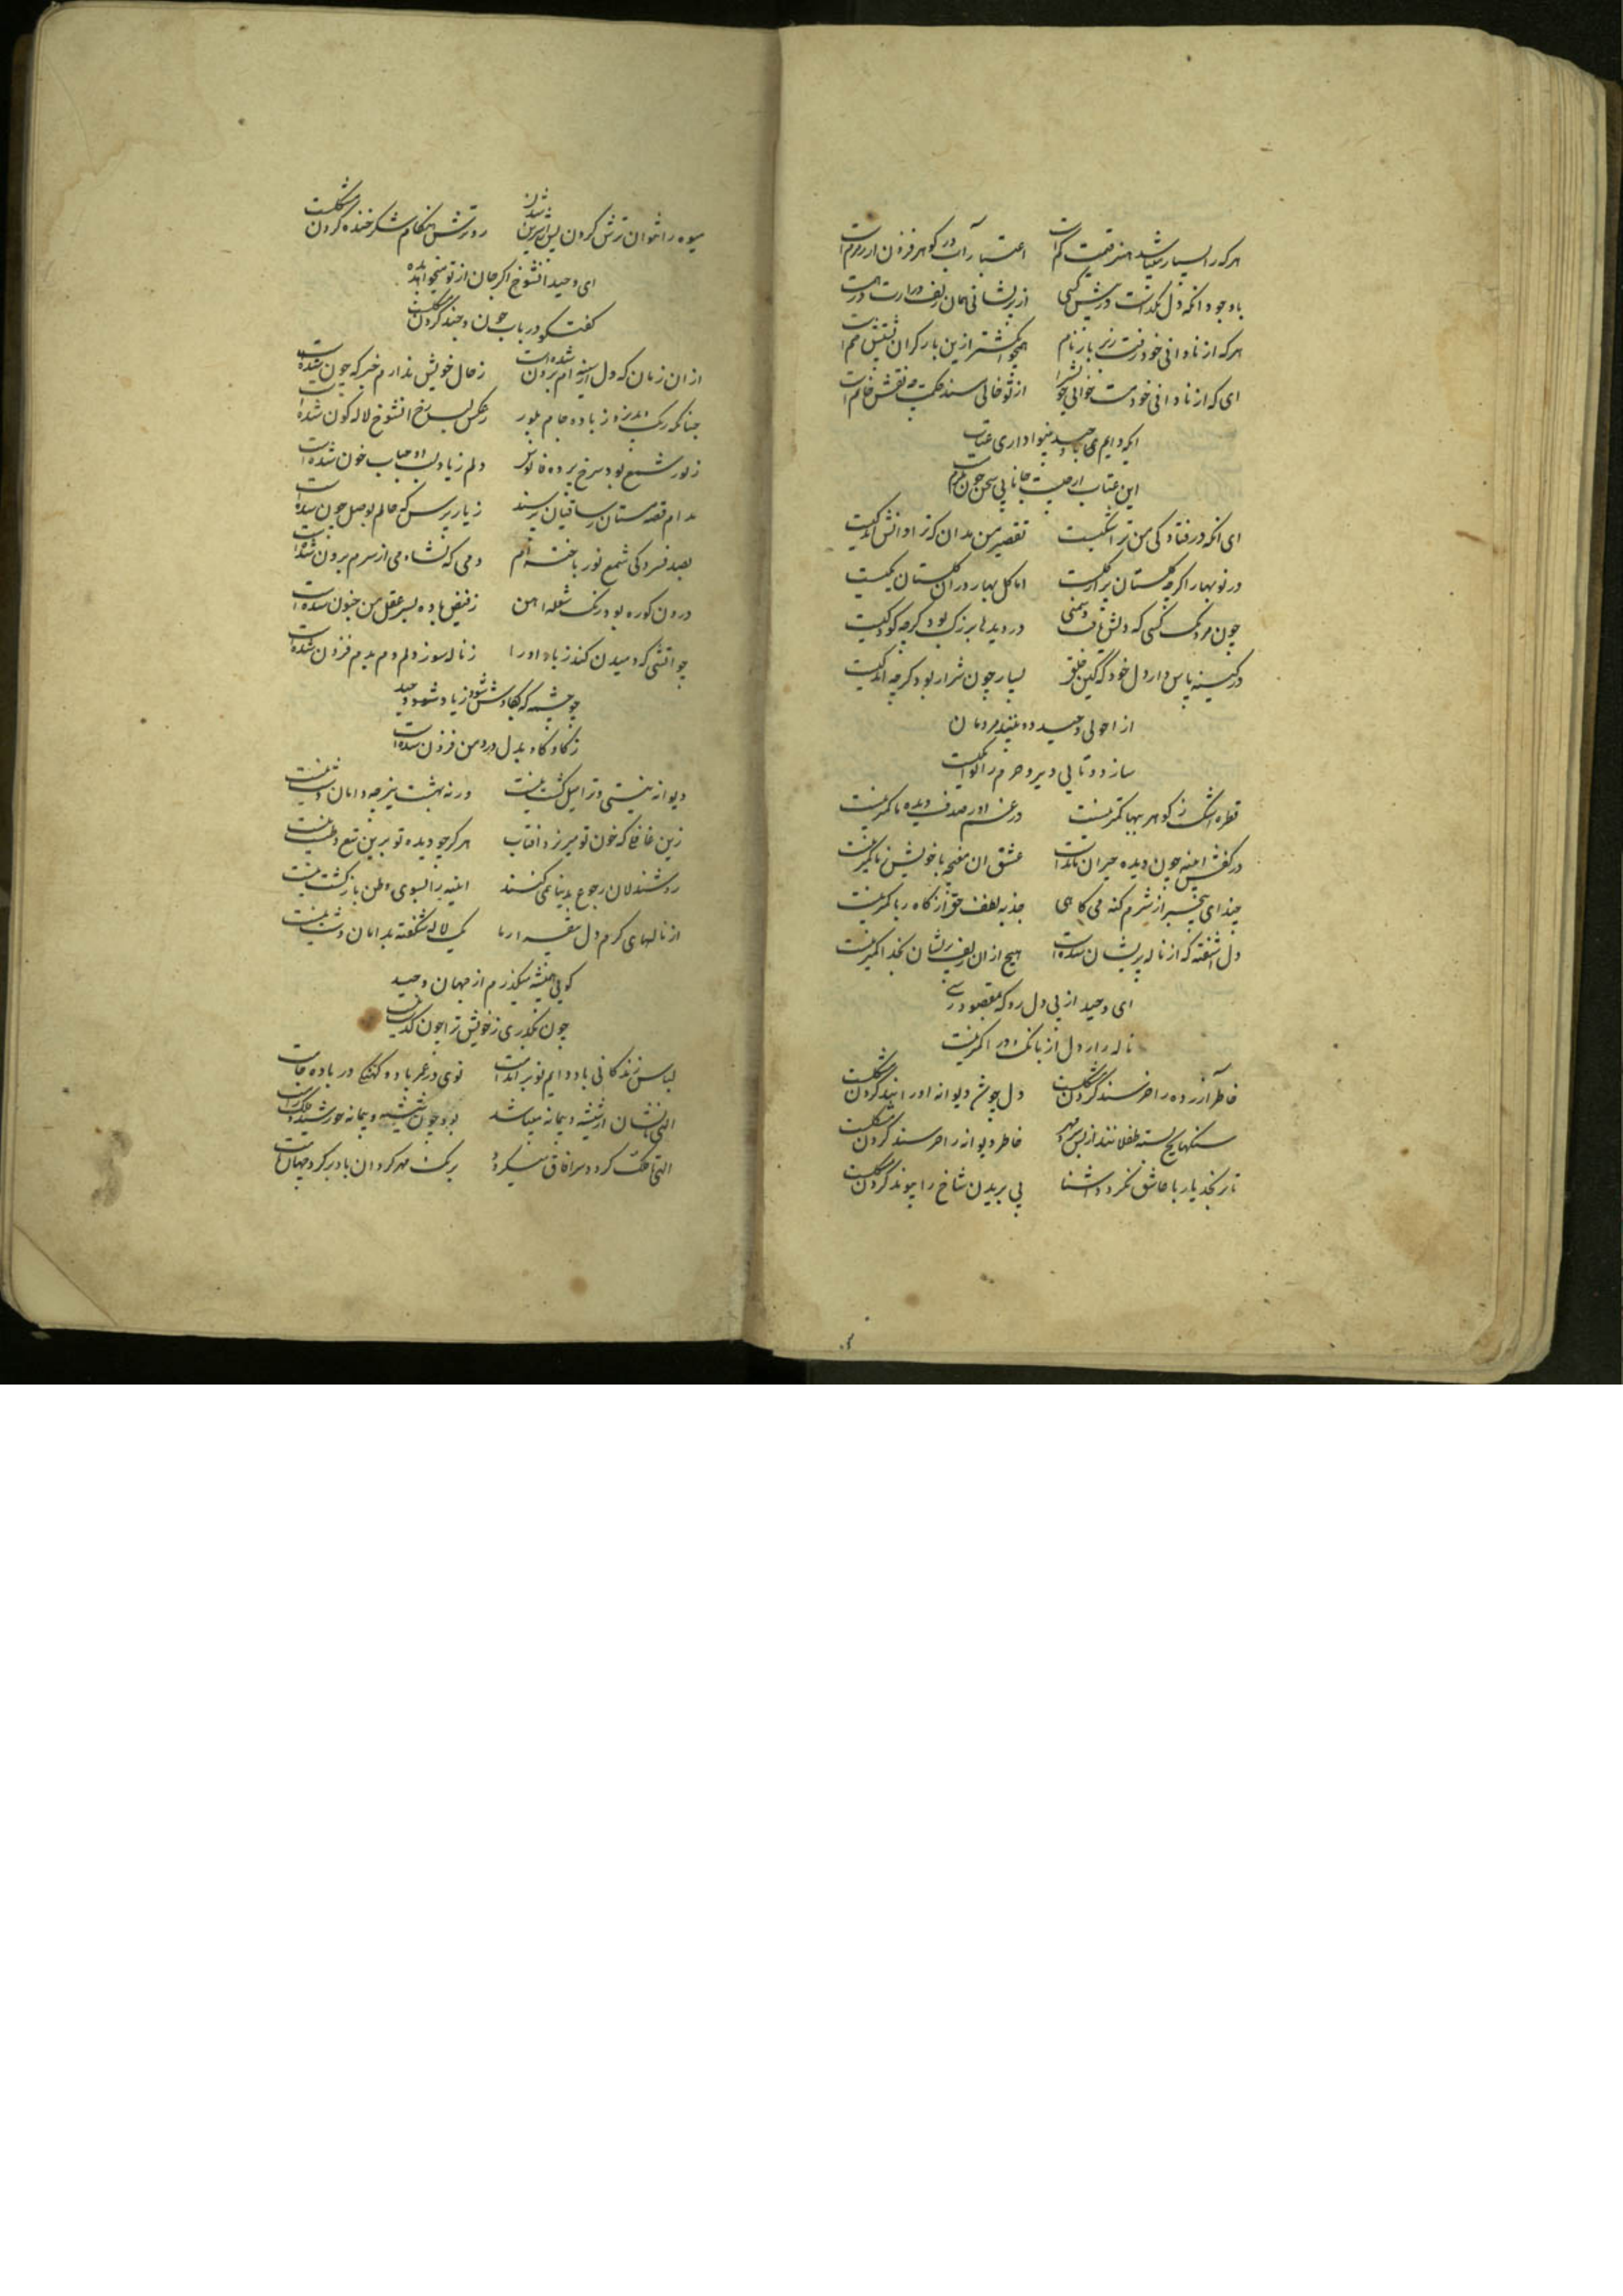 هرکه را بسیار میباشد هنر قیمت کم است اعتبار آب در گوهر فزون از زمزم است
باوجود انکه دل نگذاشت در پیش کسی از پریشانی همان زلف دراز
هرکه از نادانی خود رفت زیر بار نام همچو انگشتر ازین بار گران پشتش خم است
ای که از نادانی خود دست خاتم است
ایکه دایم با وحید بینوا داری عتاب
این عتاب از چیست جانا بی سخن چون ملزم است
ای انکه در فتادگی من ترا شکیست تقصیر من بدان که ترا دانش اندکیست
در نوبهار اگرچه گلستان پر از گلست اما گل بهار در ان گلستان یکیست
چون مردمک کسی که دلش یافت روشنی در دیدها بزرگ بود گرچه کودکیست
در کینه پاس دار دل خود که کین خلق بسیار چون شرار بود گرچه اندکیست
از احولی وحید دو بینند مردمان
ساز دوتایی دیر و حرم را نوا یکیست
قطره اشک ز گوهر ببها کمتر نیست در غم او صدف دیده ما کمتر نیست
در کفش اینه چون دیده حیران ماندست عشق ان مغبچه با خویش ز ما کمتر نیست
چند ای بیخبر از شرم گنه می کاهی جذبه لطف حق از کاه ربا کمتر نیست
دل اشفته که از ناله پریشان شده است هیچ از ان زلف پریشان بخدا کمتر نیست
ای وحید از پی دل رو که بمقصود رسی
ناله زار دل از بانک درا کمتر نیست
خاطر آزرده را خرسند کردن مشکلست دل چو شد دیوانه او را بند کردن مشکلست
سنگها طفلانند از بس خاطر دیوانه را خرسند کردن مشکلست
تا نرنجد یار با عاشق نگردد اشنا بی بریدن شاخ را پیوند کردن مشکلست
میوه را نتوان ترش کردن پس از شیرین شدن رو ترش هنگام شکرخنده کردن مشکلست
ای وحید انشوخ اگر جان از تو میخواهد بده
گفتگو در باب چون و چند کردن مشکلست
از ان زمان که دل از سینه ام برون شده است ز حال خویش ندارم خبر که چون شده است
چنانکه رنگ پذیرد ز باده جام بلور ز عکس رخ انشوخ لاله گون شده است
ز نور شمع بود سرخ پرده فانوس دلم ز یاد لب او حباب خون شده است
مدام قصه مستان ز ساقیان پرسند ز یار پرس که حالم بوصل چون شده است
بصد فسردگی شمع نور باخته ام دمی که نشاه می از سرم برون شده است
درون کوره بود رنگ شعله اهن ز فیض باده بسر عقل من جنون شده است
چو اتشی که دمیدن کند زیاد او را ز ناله سوز دلم دم بدم فزون شده است
چو چشمه که بکاوش شود زیاد وحید
ز کاو کاو بدل درد من فزون شده است
دیوانه نیستی و ترا میل گشت نیست ورنه بهشت نیز چو دامان دشت نیست
زین غافلی که خون تو میریزد افتاب
روشندلان رجوع بدنیا نمی کنند ایینه را بسوی وطن بازگشت نیست
از نالهای گرم دل بیقرار ما یک لاله شگفته بدامان دشت نیست
گویی همیشه میگذرم از جهان وحید
چون نگذری ز خویش ترا چون گذشت نیست
لباس زندگانی باد دایم نو بر اندامت
الهی تا نشان از شیشه و پیمانه میباشد بود چون شیشه و پیمانه خورشید و فلک رامت
الهی تا فلک گرد سر افاق میگردد برنگ مهر گردان باد بر گرد جهان نامت